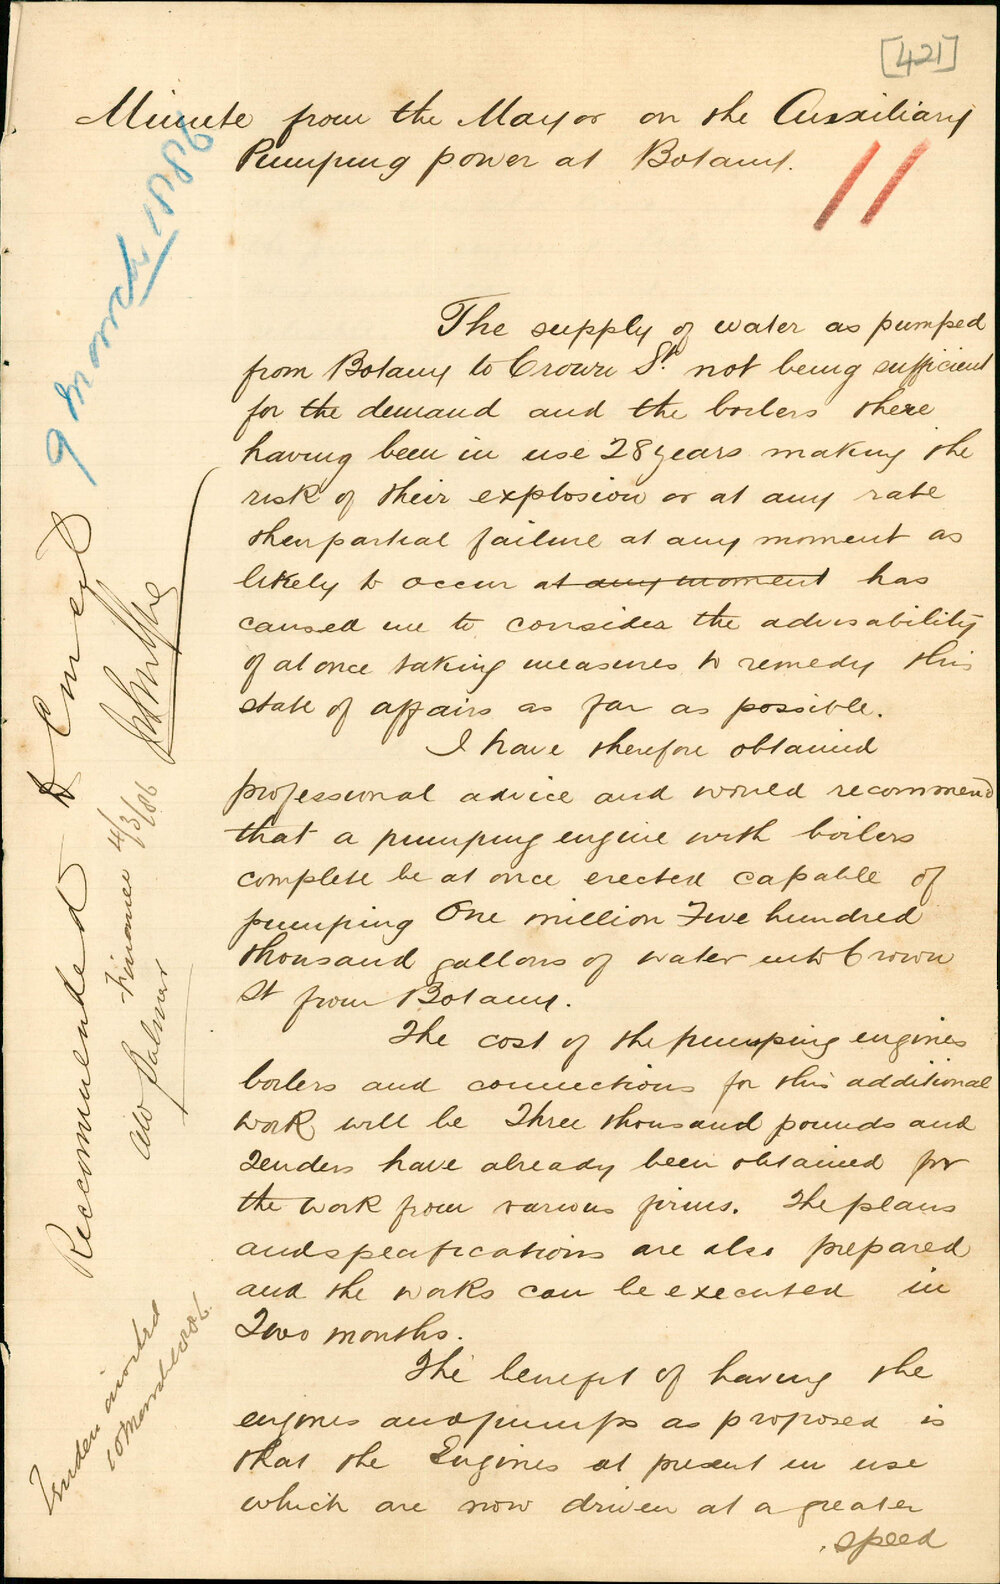 [421]
Minute from the Mayor on the Auxiliary
Pumping power at Botany.
11
9 March 1886
The supply of water as pumped
from Botany to Crown St. not being sufficient
for the demand and the boilers there
having been in use 28 years making the
risk of their explosion or at any rate
their partial failure at any moment as
likely to occur at any moment has
caused me to consider the advisability
of at once taking measures to remedy this
state of affairs as far as possible.
I have therefore obtained
professional advice and would recommend
that a pumping engine with boilers
complete be at once erected capable of
pumping One million Five hundred
thousand gallons of water into Crown
St from Botany.
The cost of the pumping engines
boilers and connections for this additional
work will be Three thousand pounds and
Tenders have already been obtained for
the work from various firms. The plans
and specifications are also prepared
and the works can be executed in
Two months.
The benefit of having the
engines and pumps as proposed is
that the Engines at present in use
which are now driven at a greater
speed
Recommended
Finance 4/3/86
Palmer
Tenders invited
10 March 1886.